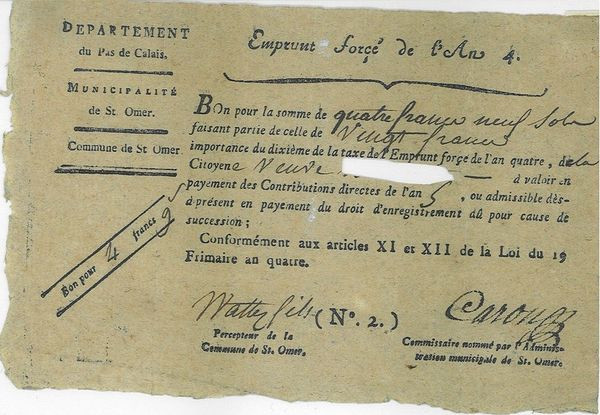 DEPARTEMENT
du Pas de Calais.
MUNICIPALITÉ
de St. Omer.
Commune de St Omer
Emprunt forçé de l'An 4.
BOn pour la somme de quatre francs neuf sols
faisant partie de celle de vingt francs
importance du dixième de la taxe de l'Emprunt forçe de l'an quatre, de la
Citoyene veuve à valoir en
payement des Contributions directes de l'an 5, ou admissible dès-
à-présent en payement du droit d'enregistrement dû pour cause de
succession;
Conformément aux articles XI et XII de la Loi du 19
Frimaire an quatre.
Bon pour 4 francs 9 s
(N°. 2.)
Percepteur de la
Commune de St. Omer.
Caron
Commissaire nommé par l'Adminis-
tration municipale de St. Omer.